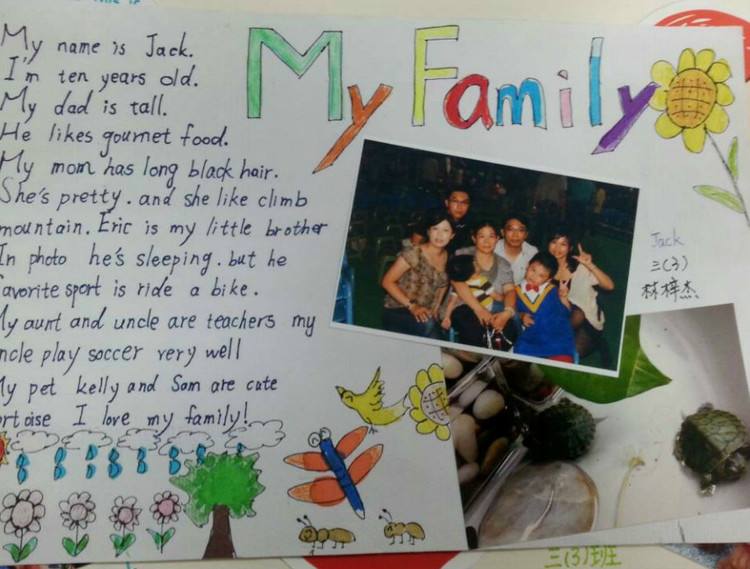 My Family
My name is Jack.
I'm ten years old.
My dad is tall.
He likes gourmet food.
My mom has long black hair.
She's pretty. and she like climb
mountain. Eric is my little brother
In photo he's sleeping. but he
favorite sport is ride a bike.
My aunt and uncle are teachers my
uncle play soccer very well
My pet kelly and Sam are cute
tortoise I love my family!
Jack
三(3)
林梓杰
三(3)班